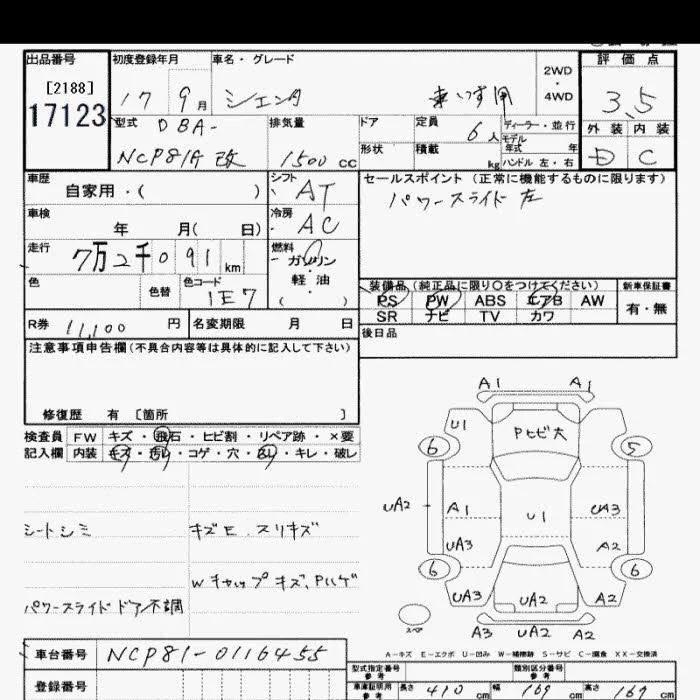 出品番号 初度登録年月 車名・グレード 評価点
[2188] 17 9月 シエンタ 車いす用 2WD・4WD 3.5
17123 型式 DBA- 排気量 ドア 定員 6人 ディーラー・並行 外装 内装
NCP81A改 1500cc 形状 積載 kg モデル年式 年 ハンドル 左・右 D C
車歴 シフト セールスポイント (正常に機能するものに限ります)
自家用・( ) AT パワースライド左
車検 冷房
年 月( 日) AC
走行 燃料
7万2千091km ガソリン・軽油
( )
色 色替 色コード 1E7 装備品(純正品に限り○をつけてください) 新車保証書
PS PW ABS エアB AW 有・無
SR ナビ TV カワ
R券 11,100円 名変期限 月 日 後日品
注意事項申告欄(不具合内容等は具体的に記入して下さい)
修復歴 有 〔箇所 〕
検査員記入欄 FW キズ・飛石・ヒビ割・リペア跡・×要
内装 キズ・汚レ・コゲ・穴・スレ・キレ・破レ
シートシミ キズE.スリキズ
Wキャップキズ、Pハゲ
パワースライドドア不調
A1 A1
U1 Pヒビ大
6 5
UA2 A1 U1 UA3
UA3 A2
6 6
UA3 UA2 UA2
スペア A3 UA2 A2
A-キズ E-エクボ U-凹み W-補修跡 S-サビ C-腐食 XX-交換済
車台番号 NCP81-0116455
登録番号
型式指定番号 参考 類別区分番号 参考
車庫証明用 参考 長さ 410cm 幅 169cm 高さ 167cm